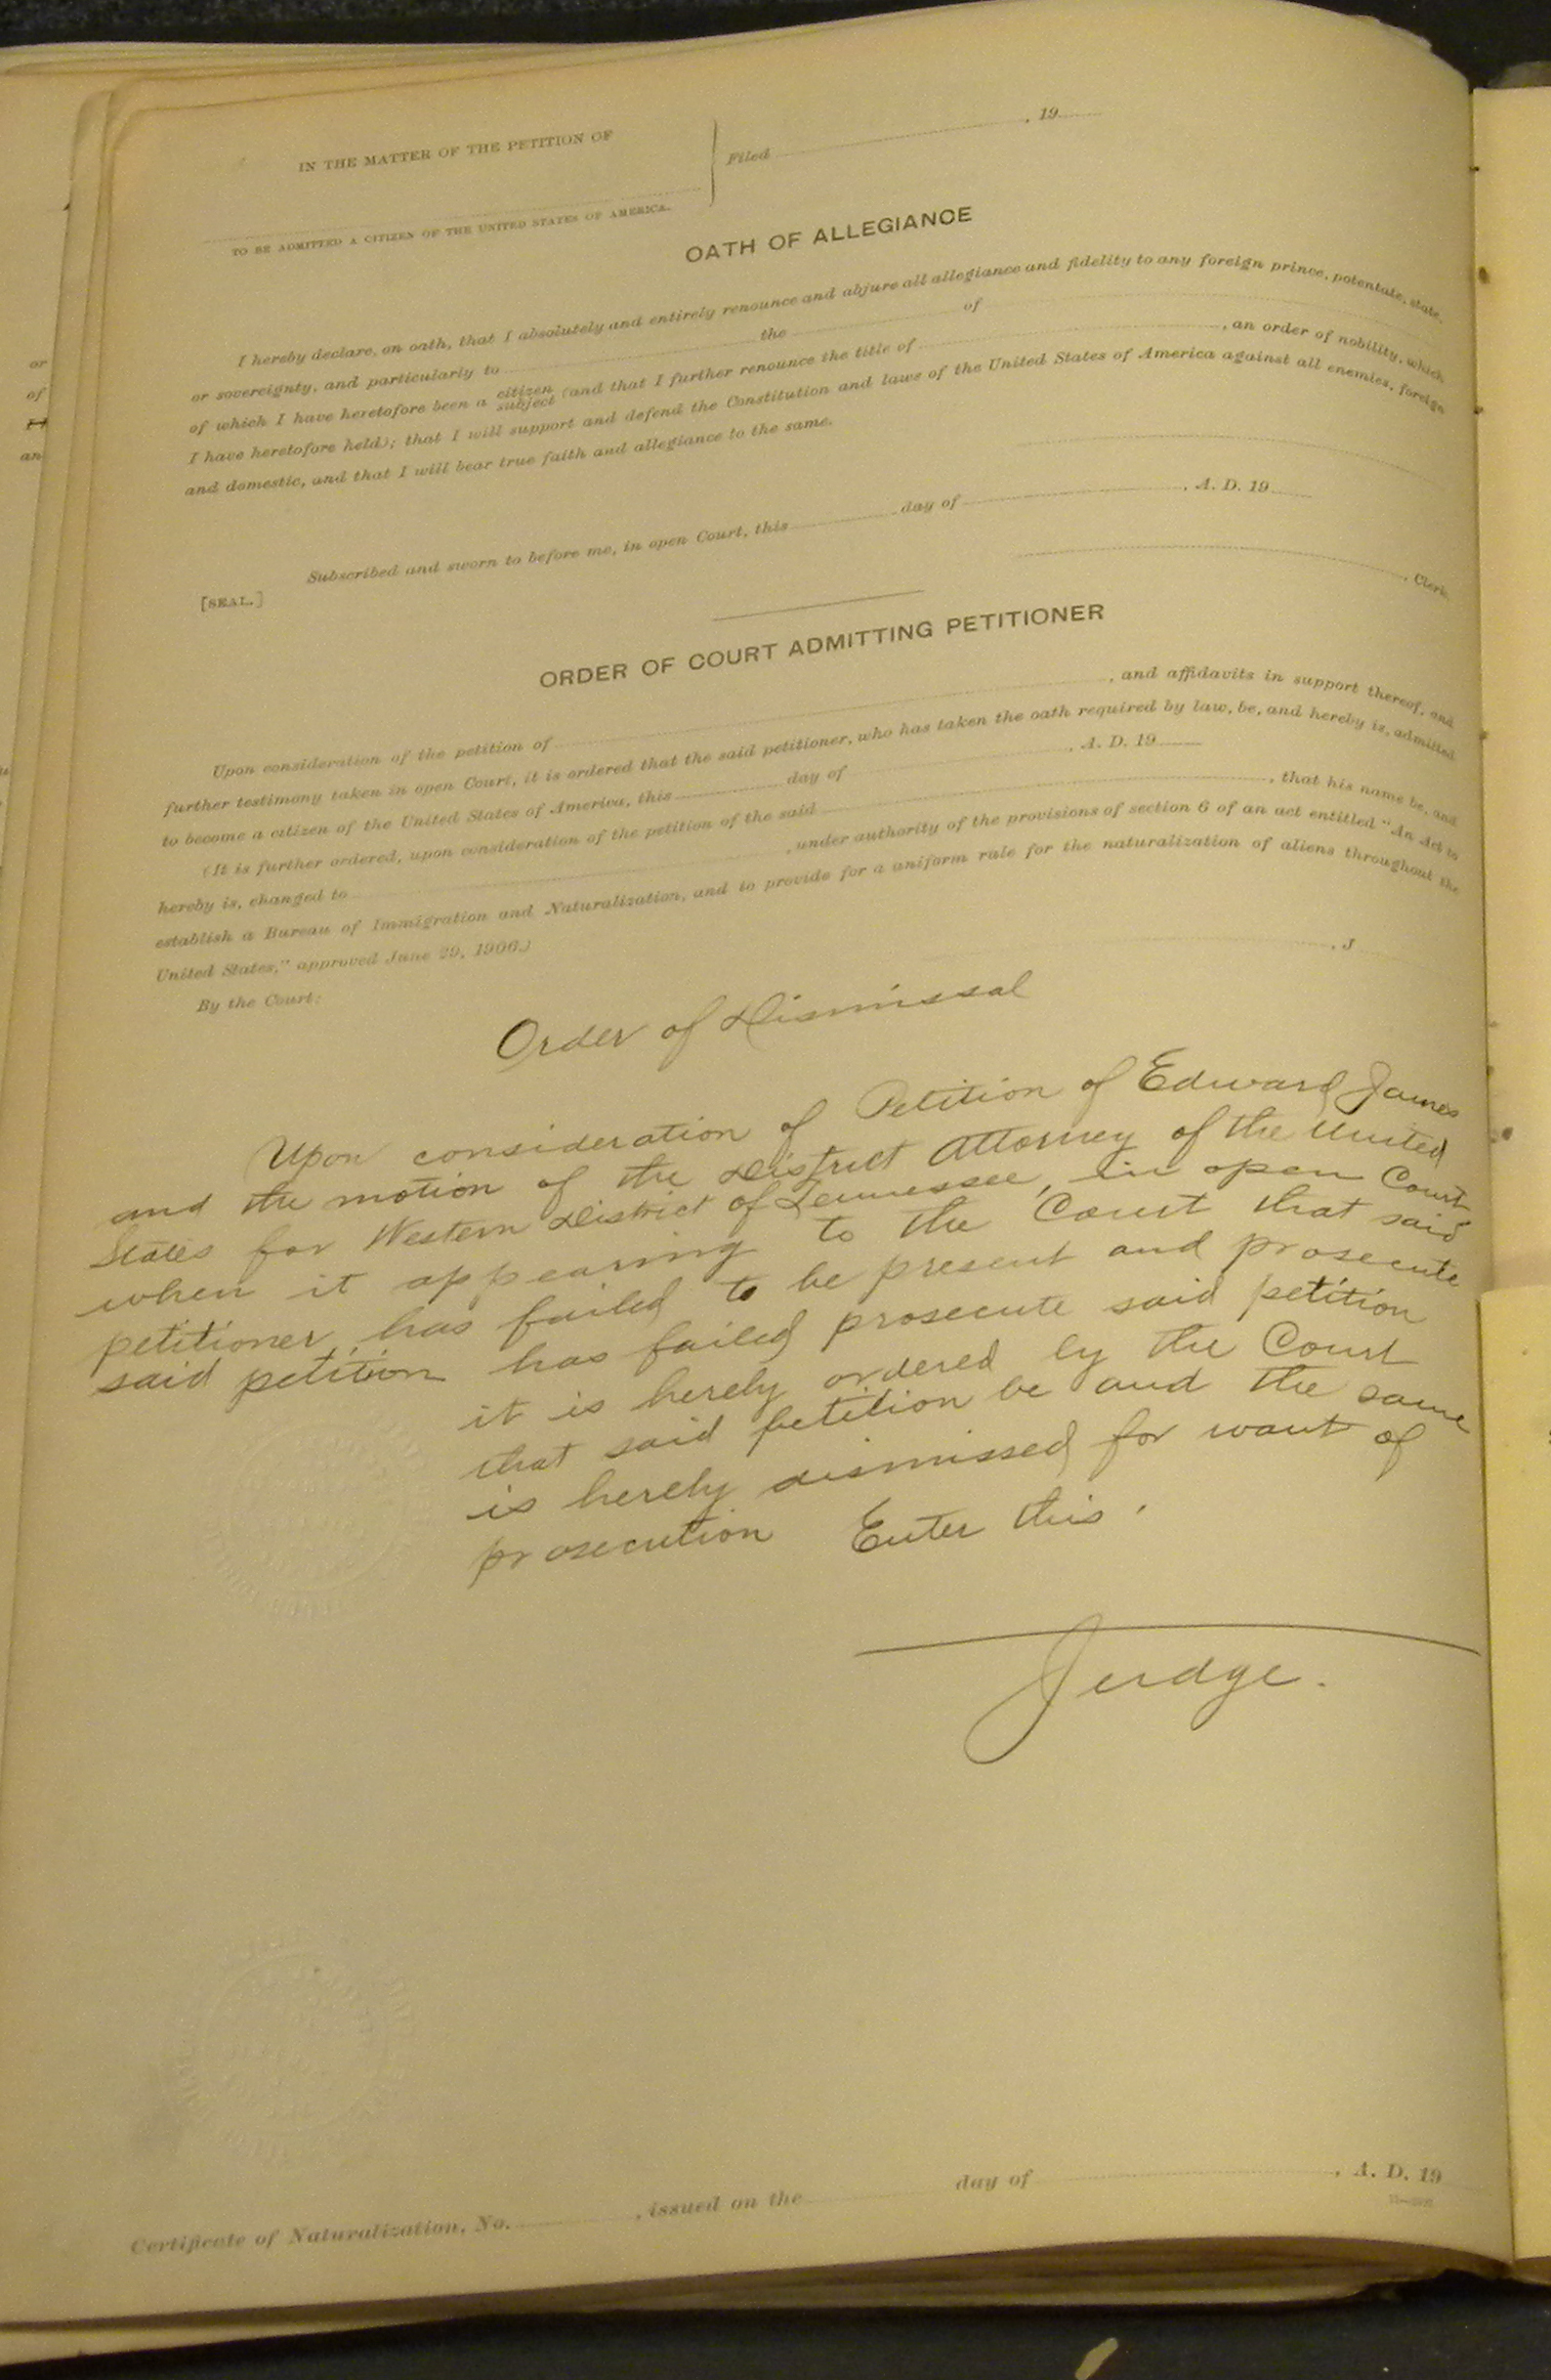 IN THE MATTER OF THE PETITION OF
Filed , 19
TO BE ADMITTED A CITIZEN OF THE UNITED STATES OF AMERICA.
OATH OF ALLEGIANCE
I hereby declare, on oath, that I absolutely and entirely renounce and abjure all allegiance and fidelity to any foreign prince, potentate, state,
or sovereignty, and particularly to the of
of which I have heretofore been a citizen subject (and that I further renounce the title of , an order of nobility, which
I have heretofore held); that I will support and defend the Constitution and laws of the United States of America against all enemies, foreign
and domestic, and that I will bear true faith and allegiance to the same.
Subscribed and sworn to before me, in open Court, this day of , A. D. 19
[SEAL.]
, Clerk.
ORDER OF COURT ADMITTING PETITIONER
Upon consideration of the petition of , and affidavits in support thereof, and
further testimony taken in open Court, it is ordered that the said petitioner, who has taken the oath required by law, be, and hereby is, admitted
to become a citizen of the United States of America, this day of , A. D. 19
(It is further ordered, upon consideration of the petition of the said , that his name be, and
hereby is, changed to , under authority of the provisions of section 6 of an act entitled "An Act to
establish a Bureau of Immigration and Naturalization, and to provide for a uniform rule for the naturalization of aliens throughout the
United States," approved June 29, 1906.)
By the Court:
, J
Order of Dismissal
Upon consideration of Petition of Edward James
and the motion of the District Attorney of the United
States for Western District of Tennessee, in open Court
when it appearing to the Court that said
petitioner, has failed to be present and prosecute
said petition has failed prosecute said petition
it is hereby ordered by the Court
that said petition be and the same
is hereby dismissed for want of
prosecution Enter this.
Judge.
Certificate of Naturalization, No. , issued on the day of , A. D. 19
or
of
an